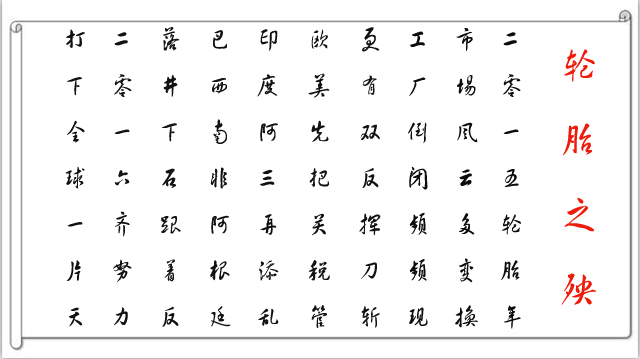 轮胎之殃
二零一五轮胎年
市场风云多变换
工厂倒闭频频现
更有双反挥刀斩
欧美先把关税管
印度阿三再添乱
巴西南非阿根廷
落井下石跟着反
二零一六齐努力
打下全球一片天